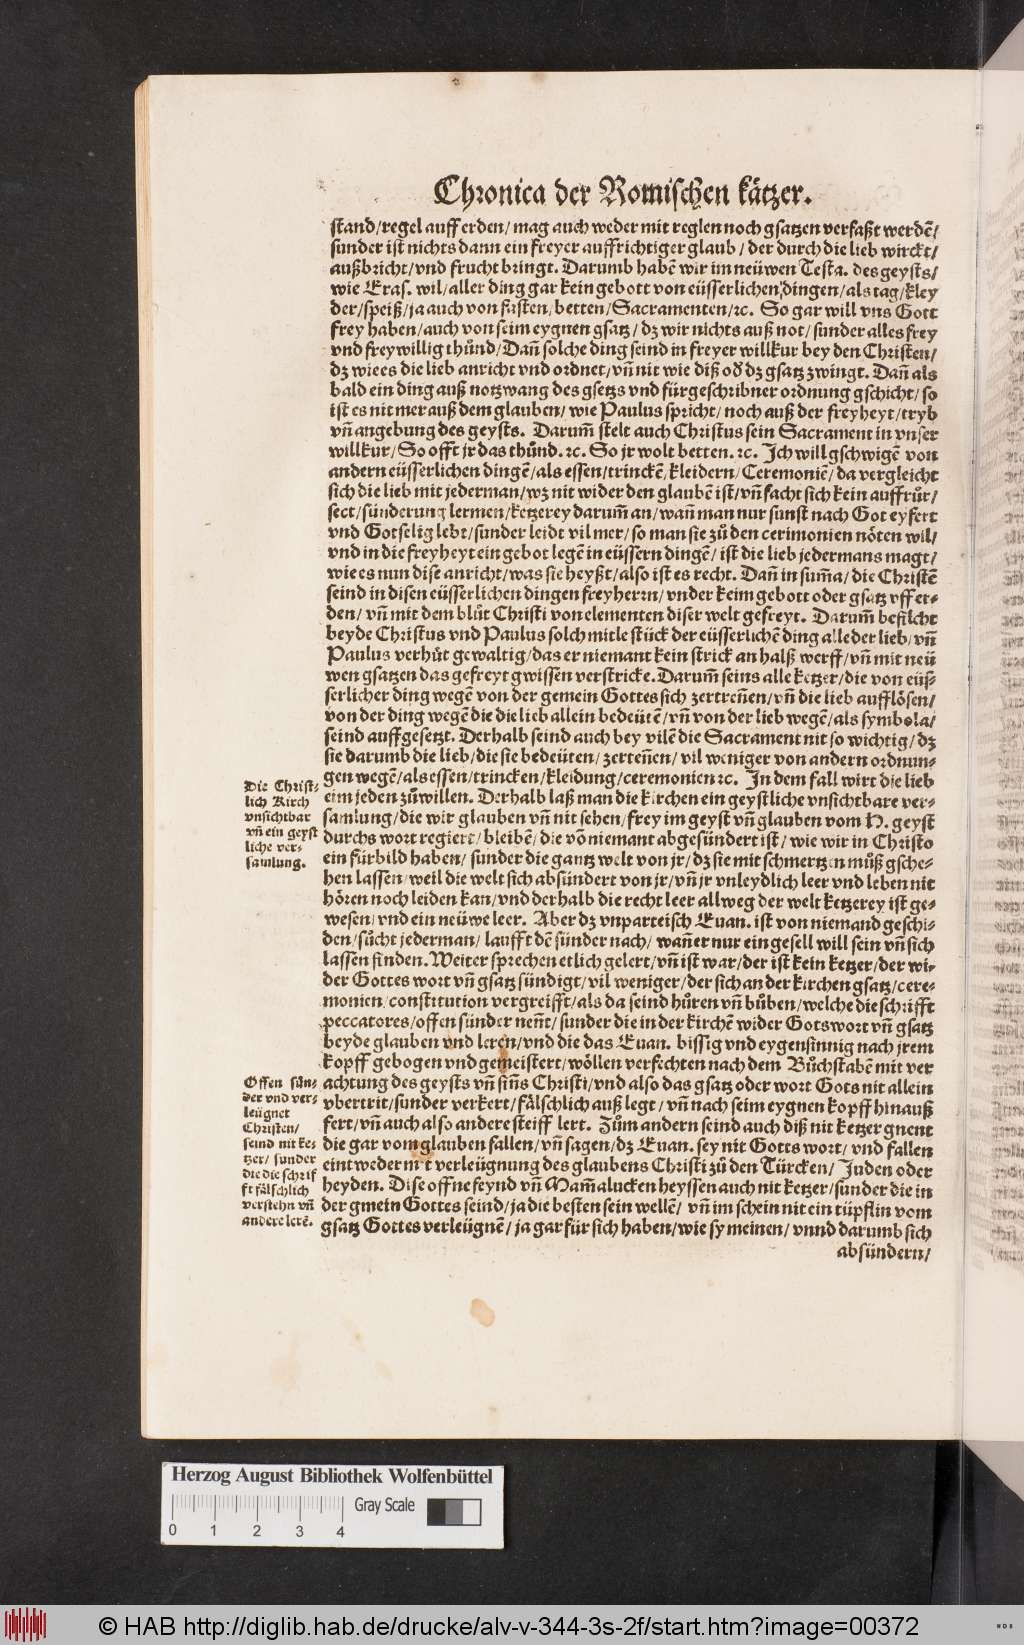 Chronica der Romischen kätzer.
stand/regel auff erden/ mag auch weder mit reglen noch gsatzen verfaßt werdē/
sunder ist nichts dann ein freyer auffrichtiger glaub/ der durch die lieb wirckt/
außbricht/vnd frucht bringt. Darumb habē wir im neüwen Testa. des geysts/
wie Eras. wil/aller ding gar kein gebott von eüsserlichen dingen/als tag/kley
der/speiß/ja auch von fasten/betten/Sacramenten/ꝛc. So gar will vns Gott
frey haben/auch von seim eygnen gsatz/ dz wir nichts auß not/sunder alles frey
vnd freywillig thůnd/Dañ solche ding seind in freyer willkur bey den Christen/
dz wie es die lieb anricht vnd ordnet/vñ nit wie diß oð dz gsatz zwingt. Dañ als
bald ein ding auß notzwang des gsetzs vnd fürgeschribner ordnung gschicht/so
ist es nit mer auß dem glauben/ wie Paulus spricht/ noch auß der freyheyt/tryb
vñ angebung des geysts. Darum̃ stelt auch Christus sein Sacrament in vnser
willkur/So offt jr das thůnd.ꝛc. So jr wolt betten.ꝛc. Ich will gschwigē von
andern eüsserlichen dingē/als essen/trinckē/kleidern/Ceremoniē/da vergleicht
sich die lieb mit jederman/wz nit wider den glaubē ist/vñ facht sich kein auffrůr/
sect/sünderung lermen/ketzerey darum̃ an/wañ man nur sunst nach Got eyfert
vnd Gotselig lebt/sunder leidt vil mer/so man sie zů den cerimonien nöten wil/
vnd in die freyheyt ein gebot legē in eüssern dingē/ ist die lieb jedermans magt/
wie es nun dise anricht/was sie heyßt/also ist es recht. Dañ in sum̃a/die Christē
seind in disen eüsserlichen dingen freyherrn/vnder keim gebott oder gsatz vff er-
den/ vñ mit dem blůt Christi von elementen diser welt gefreyt. Darum̃ befilcht
beyde Christus vnd Paulus solch mitle stück der eüsserlichē ding alle der lieb/vñ
Paulus verhůt gewaltig/das er niemant kein strick an halß werff/vñ mit neü
wen gsatzen das gefreyt gwissen verstricke. Darum̃ seins alle ketzer/die von eüs-
serlicher ding wegē von der gemein Gottes sich zertreñen/vñ die lieb aufflösen/
von der ding wegē die die lieb allein bedeütē/vñ von der lieb wegē/als symbola/
seind auffgesetzt. Derhalb seind auch bey vilē die Sacrament nit so wichtig/dz
sie darumb die lieb/die sie bedeüten/zerteñen/ vil weniger von andern ordnun-
gen wegē/als essen/trincken/kleidung/ceremonien ꝛc. In dem fall wirt die lieb
eim jeden zů willen. Derhalb laß man die kirchen ein geystliche vnsichtbare ver-
samlung/die wir glauben vñ nit sehen/frey im geyst vñ glauben vom H. geyst
durchs wort regiert/bleibē/die võ niemant abgesündert ist/ wie wir in Christo
ein fürbild haben/ sunder die gantz welt von jr/dz sie mit schmertzen můß gsche-
hen lassen/weil die welt sich absündert von jr/vñ jr vnleydlich leer vnd leben nit
hören noch leiden kan/vnd derhalb die recht leer allweg der welt ketzerey ist ge-
wesen/vnd ein neüwe leer. Aber dz vnparteisch Euan. ist von niemand geschi-
den/sůcht jederman/ laufft dē sünder nach/ wañ er nur ein gesell will sein vñ sich
lassen finden. Weiter sprechen etlich gelert/vñ ist war/der ist kein ketzer/der wi-
der Gottes wort vñ gsatz sündigt/vil weniger/der sich an der kirchen gsatz/cere-
monien/constitution vergreifft/als da seind hůren vñ bůben/welche die schrifft
peccatores/offen sünder neñt/sunder die in der kirchē wider Gotswort vñ gsatz
beyde glauben vnd leren/vnd die das Euan. bissig vnd eygensinnig nach jrem
kopff gebogen vnd gemeistert/wöllen verfechten nach dem Bůchstabē mit ver
achtung des geysts vñ siñs Christi/vnd also das gsatz oder wort Gots nit allein
vbertrit/sunder verkert/fälschlich auß legt/ vñ nach seim eygnen kopff hinauß
fert/vñ auch also andere steiff lert. Zům andern seind auch diß nit ketzer gnent
die gar vom glauben fallen/vñ sagen/dz Euan. sey nit Gotts wort/vnd fallen
eintweder mit verleügnung des glaubens Christi zů den Türcken/ Juden oder
heyden. Dise offne feynd vñ Mam̃alucken heyssen auch nit ketzer/sunder die in
der gmein Gottes seind/ja die besten sein wellē/ vñ im schein nit ein tüpflin vom
gsatz Gottes verleügnē/ja gar für sich haben/wie sy meinen/ vnnd darumb sich
absündern/
Die Christ-
lich Kirch
vnsichtbar
vñ ein geyst
liche ver-
samlung.
Offen sün-
der vnd ver-
leügnet
Christen/
seind nit ke-
tzer/ sunder
die die schrif
ft fälschlich
verstehn vñ
andere lerē.
Herzog August Bibliothek Wolfenbüttel
Gray Scale
0 1 2 3 4
© HAB http://diglib.hab.de/drucke/alv-v-344-3s-2f/start.htm?image=00372